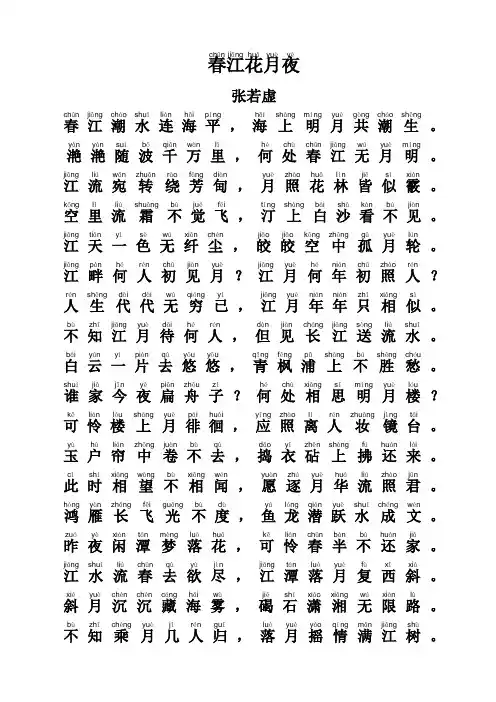 chūn jiāng huā yuè yè
春江花月夜
张若虚
chūn jiāng cháo shuǐ lián hǎi píng hǎi shàng míng yuè gòng cháo shēng
春江潮水连海平，海上明月共潮生。
yàn yàn suí bō qiān wàn lǐ hé chù chūn jiāng wú yuè míng
滟滟随波千万里，何处春江无月明。
jiāng liú wǎn zhuǎn rào fāng diàn yuè zhào huā lín jiē sì xiàn
江流宛转绕芳甸，月照花林皆似霰。
kōng lǐ liú shuāng bù jué fēi tīng shàng bái shā kàn bù jiàn
空里流霜不觉飞，汀上白沙看不见。
jiāng tiān yī sè wú xiān chén jiǎo jiǎo kōng zhōng gū yuè lún
江天一色无纤尘，皎皎空中孤月轮。
jiāng pàn hé rén chū jiàn yuè jiāng yuè hé nián chū zhào rén
江畔何人初见月？江月何年初照人？
rén shēng dài dài wú qióng yǐ jiāng yuè nián nián zhǐ xiāng sì
人生代代无穷已，江月年年只相似。
bù zhī jiāng yuè dài hé rén dàn jiàn cháng jiāng sòng liú shuǐ
不知江月待何人，但见长江送流水。
bái yún yī piàn qù yōu yōu qīng fēng pǔ shàng bù shèng chóu
白云一片去悠悠，青枫浦上不胜愁。
shuí jiā jīn yè piān zhōu zǐ hé chù xiāng sī míng yuè lóu
谁家今夜扁舟子？何处相思明月楼？
kě lián lóu shàng yuè pái huái yīng zhào lí rén zhuāng jìng tái
可怜楼上月徘徊，应照离人妆镜台。
yù hù lián zhōng juàn bù qù dǎo yī zhēn shàng fú huán lái
玉户帘中卷不去，捣衣砧上拂还来。
cǐ shí xiāng wàng bù xiāng wén yuàn zhú yuè huá liú zhào jūn
此时相望不相闻，愿逐月华流照君。
hóng yàn cháng fēi guāng bù dù yú lóng qián yuè shuǐ chéng wén
鸿雁长飞光不度，鱼龙潜跃水成文。
zuó yè xián tán mèng luò huā kě lián chūn bàn bù huán jiā
昨夜闲潭梦落花，可怜春半不还家。
jiāng shuǐ liú chūn qù yù jìn jiāng tán luò yuè fù xī xié
江水流春去欲尽，江潭落月复西斜。
xié yuè chén chén cáng hǎi wù jié shí xiāo xiāng wú xiàn lù
斜月沉沉藏海雾，碣石潇湘无限路。
bù zhī chéng yuè jǐ rén guī luò yuè yáo qíng mǎn jiāng shù
不知乘月几人归，落月摇情满江树。